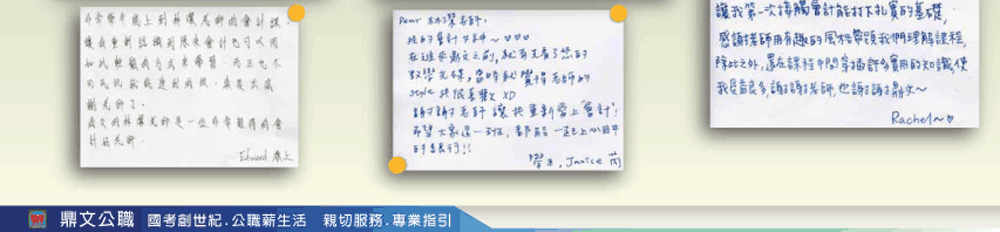 非常榮幸能上到林澐老師的會計課,
讓我重新認識到原來會計也可以用
如此輕鬆的方式來學習,而且也不
可
了.
鼎文的林澐老師是一位非常難得的會
計好老師.
Edward 敬上
Dear 林澐老師:
我的會計女神~♡♡♡
在進來鼎文之前,就有先看了您的
教學光碟,當時就覺得老師的
style 我很喜歡 XD
謝謝老師讓我重新愛上"會計"!
希望大家這一班,都能一起上心目中
的銀行!!
學生,Janice
讓我第一次接觸會計能打下扎實的基礎,
感謝老師用有趣的風格帶領我們理解課程,
除此之外,還在課程中間穿插許多實用的知識,使
我受益良多,謝謝老師,也謝謝鼎文~
Rachel~♡
鼎文公職 國考創世紀.公職薪生活 親切服務.專業指引